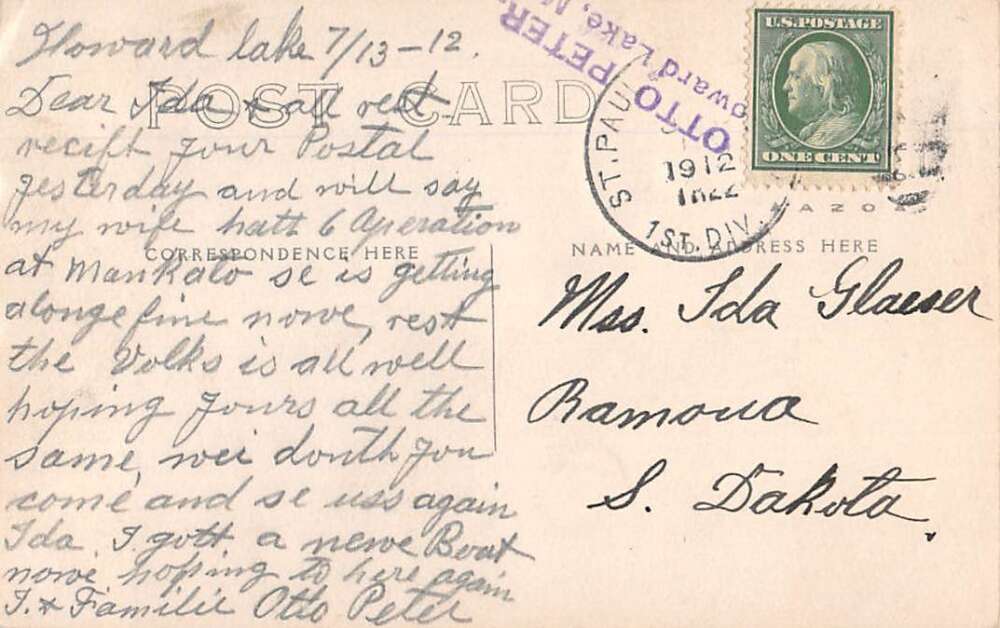 Howard lake 7/13-12.
Dear Ida & all rest
recift your Postal
yesterday and will say
my wife hatt 6 Aperation
at Mankato se is getting
alonge fine nowe, rest
the Volks is all well
hoping yours all the
same, wei donth you
come and se uss again
Ida. I gott a newe Boat
nowe hoping to here again
I. & Familie Otto Peter
POST CARD
CORRESPONDENCE HERE
OTTO PETER
Howard Lake, M
ST. PAUL
1912
1ST. DIV.
U.S. POSTAGE
ONE CENT
AZO
NAME AND ADDRESS HERE
Mrs. Ida Glaeser
Ramona
S. Dakota.